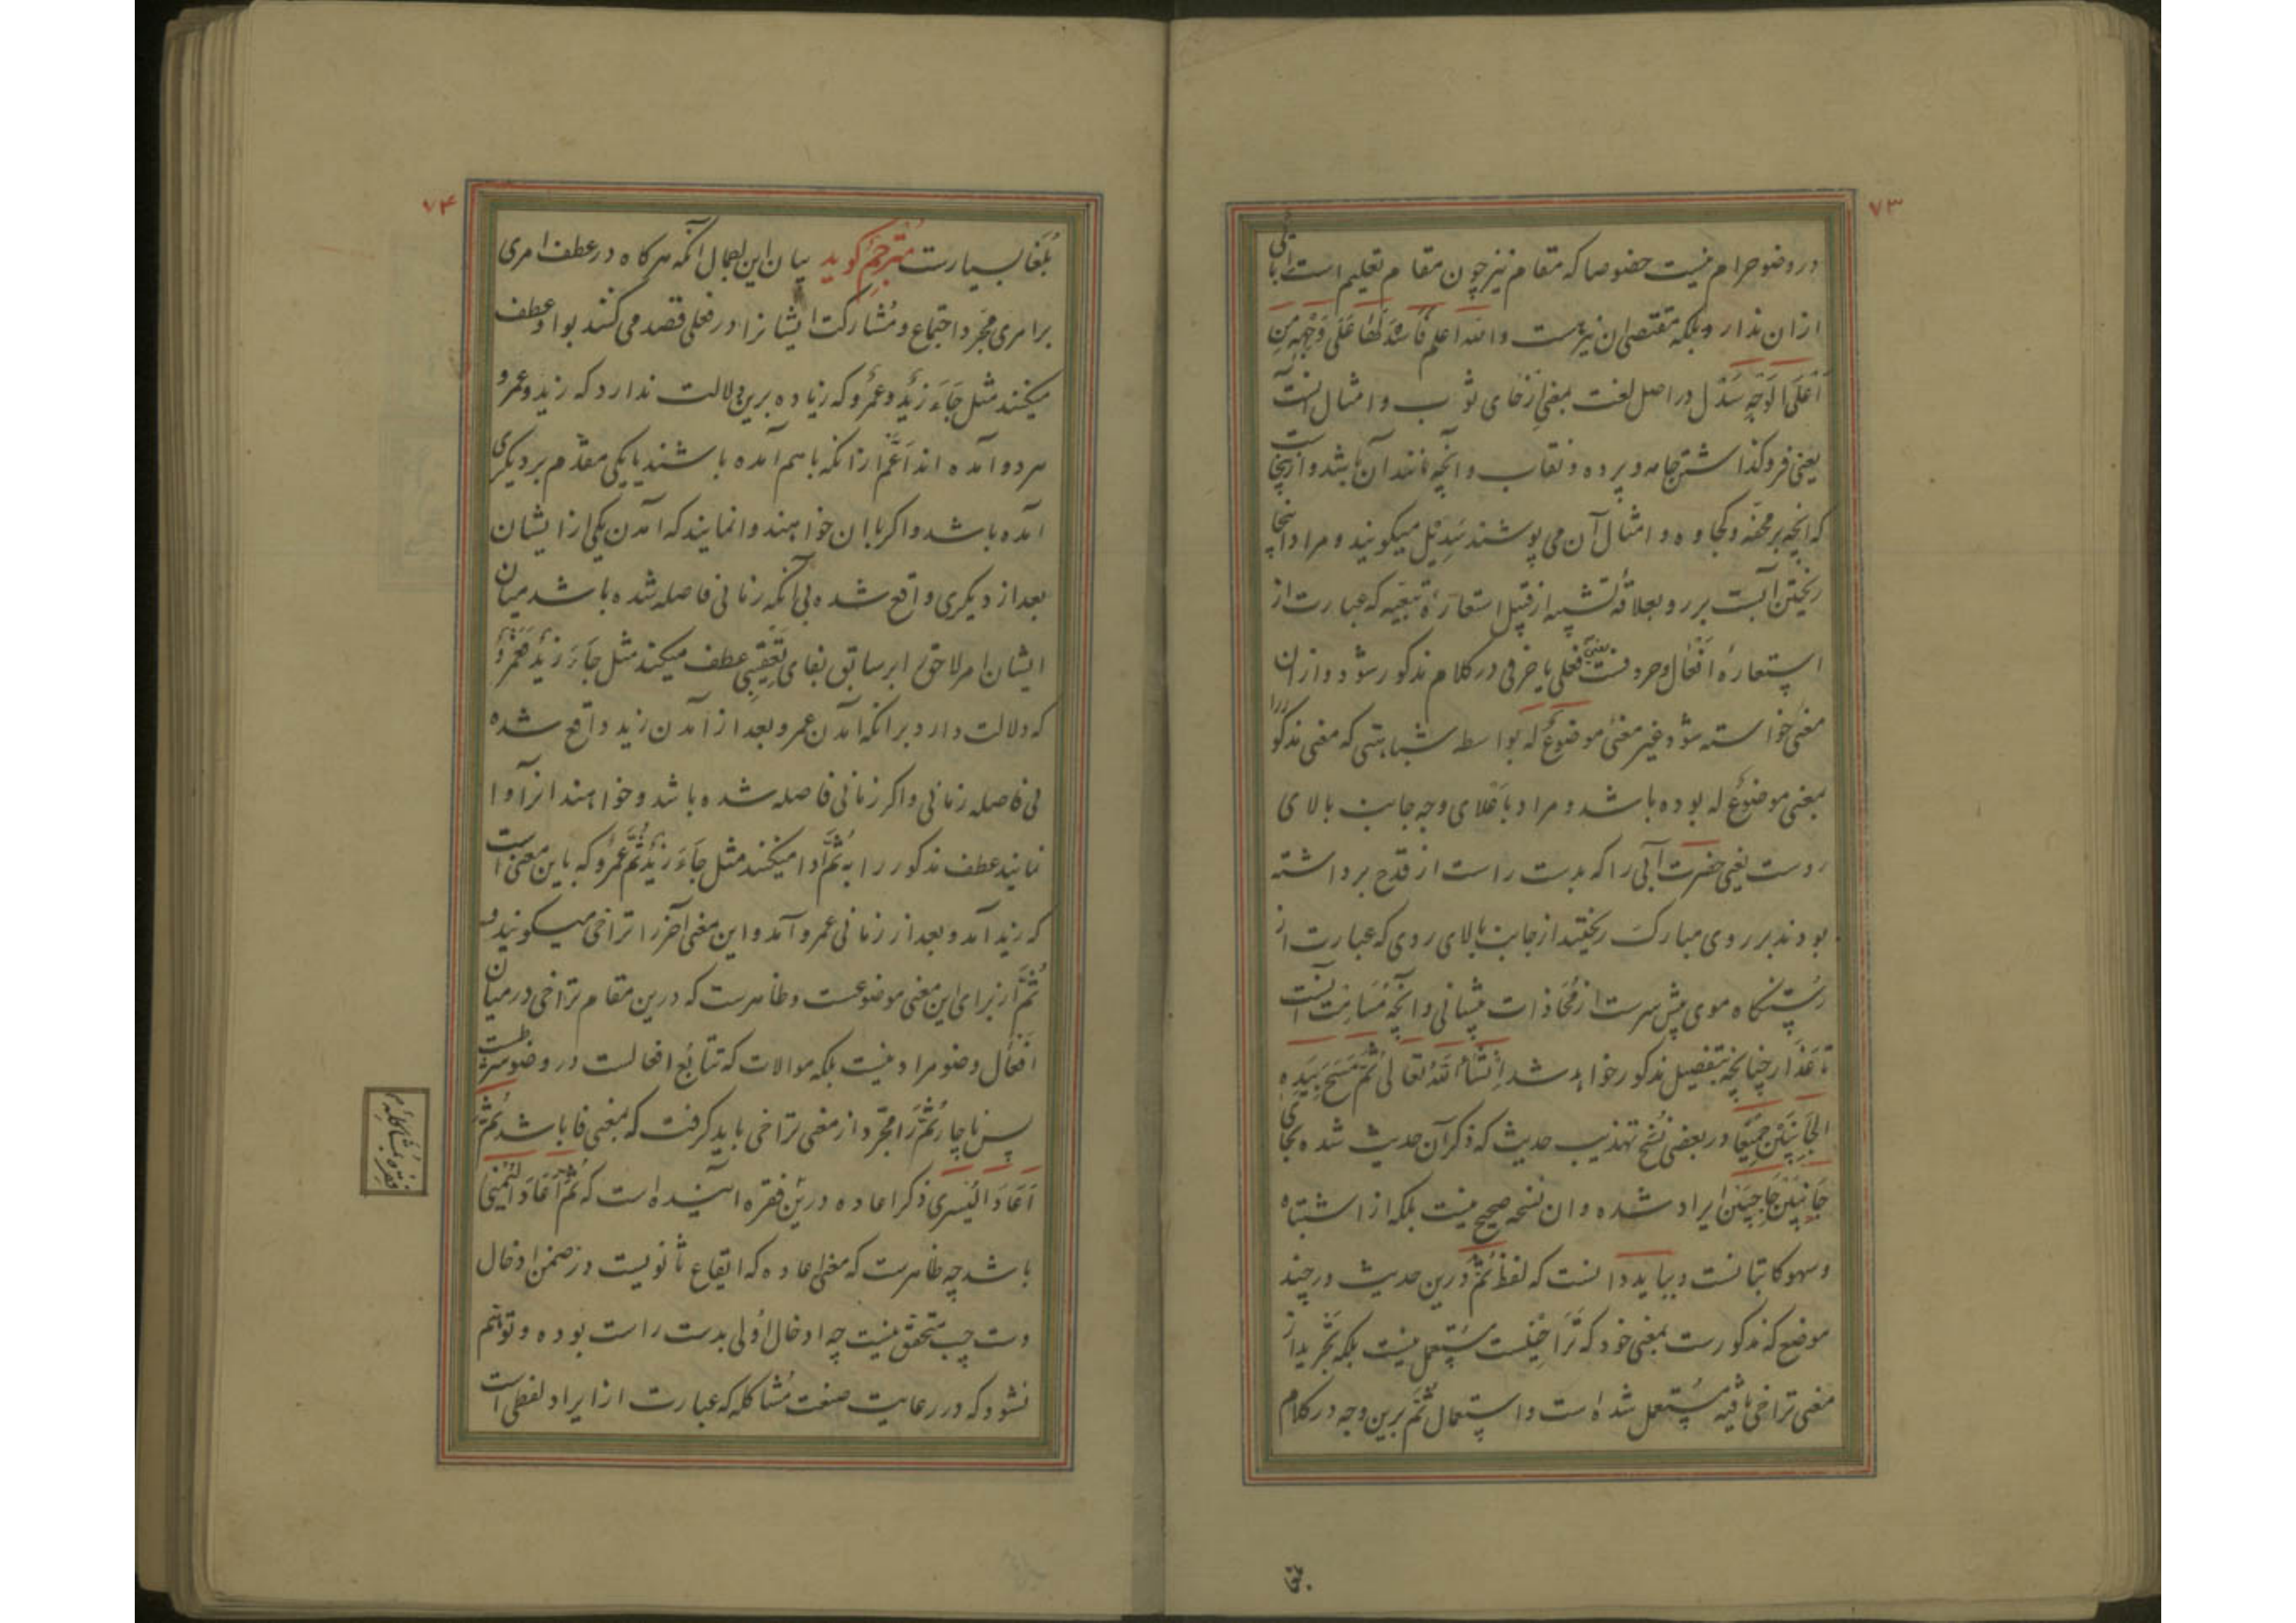 ۷۳
در وضو حرام نیست خصوصا که مقام نیز چون مقام تعلیم است ابائی
ازان ندارد بلکه مقتضی ان نیز هست والله اعلم فَاَسْدَلَهَا عَلَی وَجْهِهِ مِنْ
اَعْلَی الْوَجْهِ سَدْل در اصل لغت بمعنی اِرْخای ثوب و امثال آنست
یعنی فروکذاشتن جامه و پرده و نقاب و آنچه مانند آن باشد و ازینجاست
که انچه بر محفّه و کجاوه و امثال آن می پوشند سَدِیْل میکویند و مراد اینجا
ریختن آبست بر رو بعلاقهٔ تشبیه از قبیل استعارهٔ تبعیّه که عبارت از
استعارهٔ اَفْعال و حروفست یعنی فعلی یا حرفی در کلام مذکور شود و ازان
معنی خواسته شود غیر معنی موضوعٌ له بواسطه شباهتی که معنی مذکور را
بمعنی موضوعٌ له بوده باشد و مراد باَعْلای وجه جانب بالای
روست یعنی حضرت آبی را که بدست راست از قدح برداشته
بودند بر روی مبارک ریختند از جانب بالای روی که عبارت از
رُستنکاه موی پیش سرست از مُحَاذات پیشانی و آنچه مُسَامِت آنست
تا عَذَار چنانچه بتفصیل مذکور خواهد شد اِنْشَاءَ اللهُ تعالی ثُمَّ مَسَحَ بِیَدِهِ
الْجَانِبَیْنِ جَمِیْعًا و در بعضی نُسَخ تهذیب حدیث که ذکر آن حدیث شده بجای
جَانِبَیْنِ حَاجِبَیْنِ ایراد شده و ان نسخه صحیح نیست بلکه از اشتباه
و سهو کاتبانست و بباید دانست که لفظ ثُمَّ درین حدیث در چند
موضع که مذکورست بمعنی خود که تَراخِیْست مستعمل نیست بلکه بتَجْرید از
معنی تراخی مافیه مستعمل شده است و استعمال ثُمَّ برین وجه در کلام
۷۴
بُلَغا بسیارست مُتَرجِمْ کوید بیان این اجمال انکه هرکاه در عطف امری
بر امری مجَرد اجتماع و مُشارکت ایشانرا در فعلی قصد می کنند بواو عطف
میکنند مثل جَاءَ زَیْدٌ وَ عَمْرٌو که زیاده برین دلالت ندارد که زید و عمرو
هر دو آمده اند اَعَمّ ازانکه باهم آمده باشند یا یکی مقدّم بر دیکری
آمده باشد و اکر با ان خواهند وانمایند که آمدن یکی از ایشان
بعد از دیکری واقع شده بی آنکه زمانی فاصله شده باشد میان
ایشان امر لاحق را بر سابق بفای تعقیبی عطف میکنند مثل جَاءَ زَیْدٌ فَعَمْرٌو
که دلالت دارد برانکه آمدن عمرو بعد از آمدن زید واقع شده
بی فاصله زمانی و اکر زمانی فاصله شده باشد و خواهند انرا وا
نمایند عطف مذکور را به ثُمَّ ادا میکنند مثل جَاءَ زَیْدٌ ثُمَّ عَمْرٌو که باین معنی است
که زید آمد و بعد از زمانی عمرو آمد و این معنی آخر را تراخی میکویند و
ثُمَّ از برای این معنی موضوعست و ظاهرست که درین مقام تراخی در میان
اَفْعال وضو مراد نیست بلکه موالات که تتابُع افعالست در وضو شرطست
پس ناچار ثُمَّ را مجرّد از معنی تراخی باید کرفت که بمعنی فا باشد ثُمَّ
اَعَادَ الْیُسْری ذکر اعاده درین فقره آینده است که ثُمَّ اَعَادَ الْیُمْنی
باشد چه ظاهرست که معنی اعاده که ایقاع ثانویست در ضمن ادخال
دست چپ متحقق نیست چه ادخال اوّلی بدست راست بوده و توهّم
نشود که در رعایت صنعت مُشاکله که عبارت از ایراد لفظی است
فقره بمشاکلهٔ